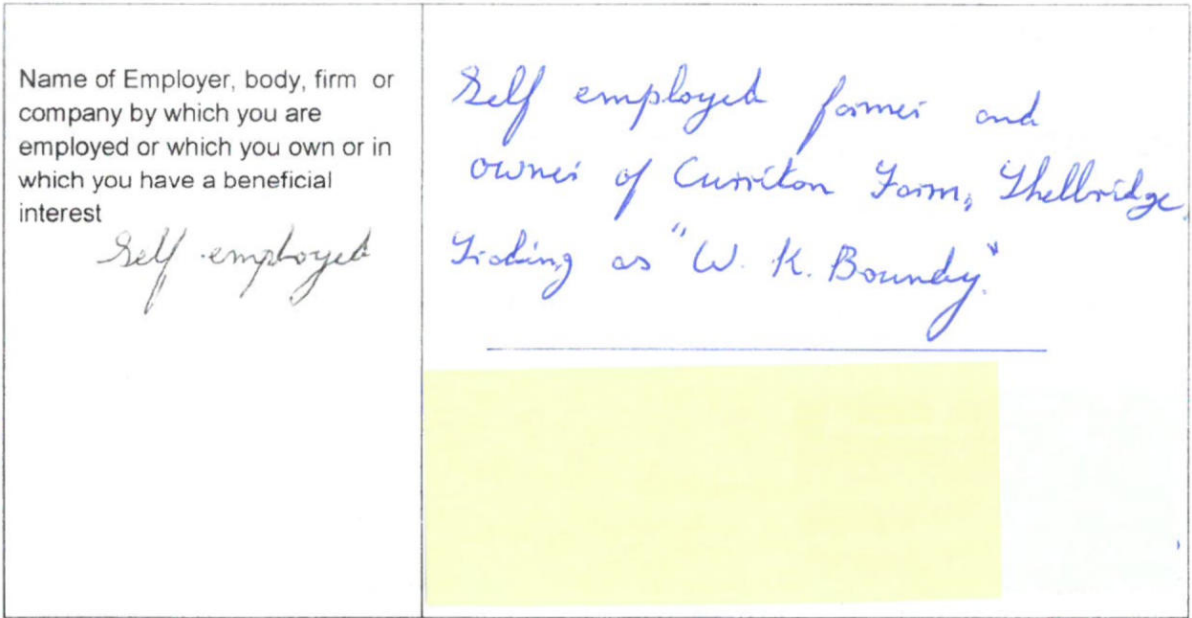 Name of Employer, body, firm or
company by which you are
employed or which you own or in
which you have a beneficial
interest
Self employed
Self employed farmer and
owner of Curriton Farm, Thelbridge,
Trading as "W. K. Boundy".